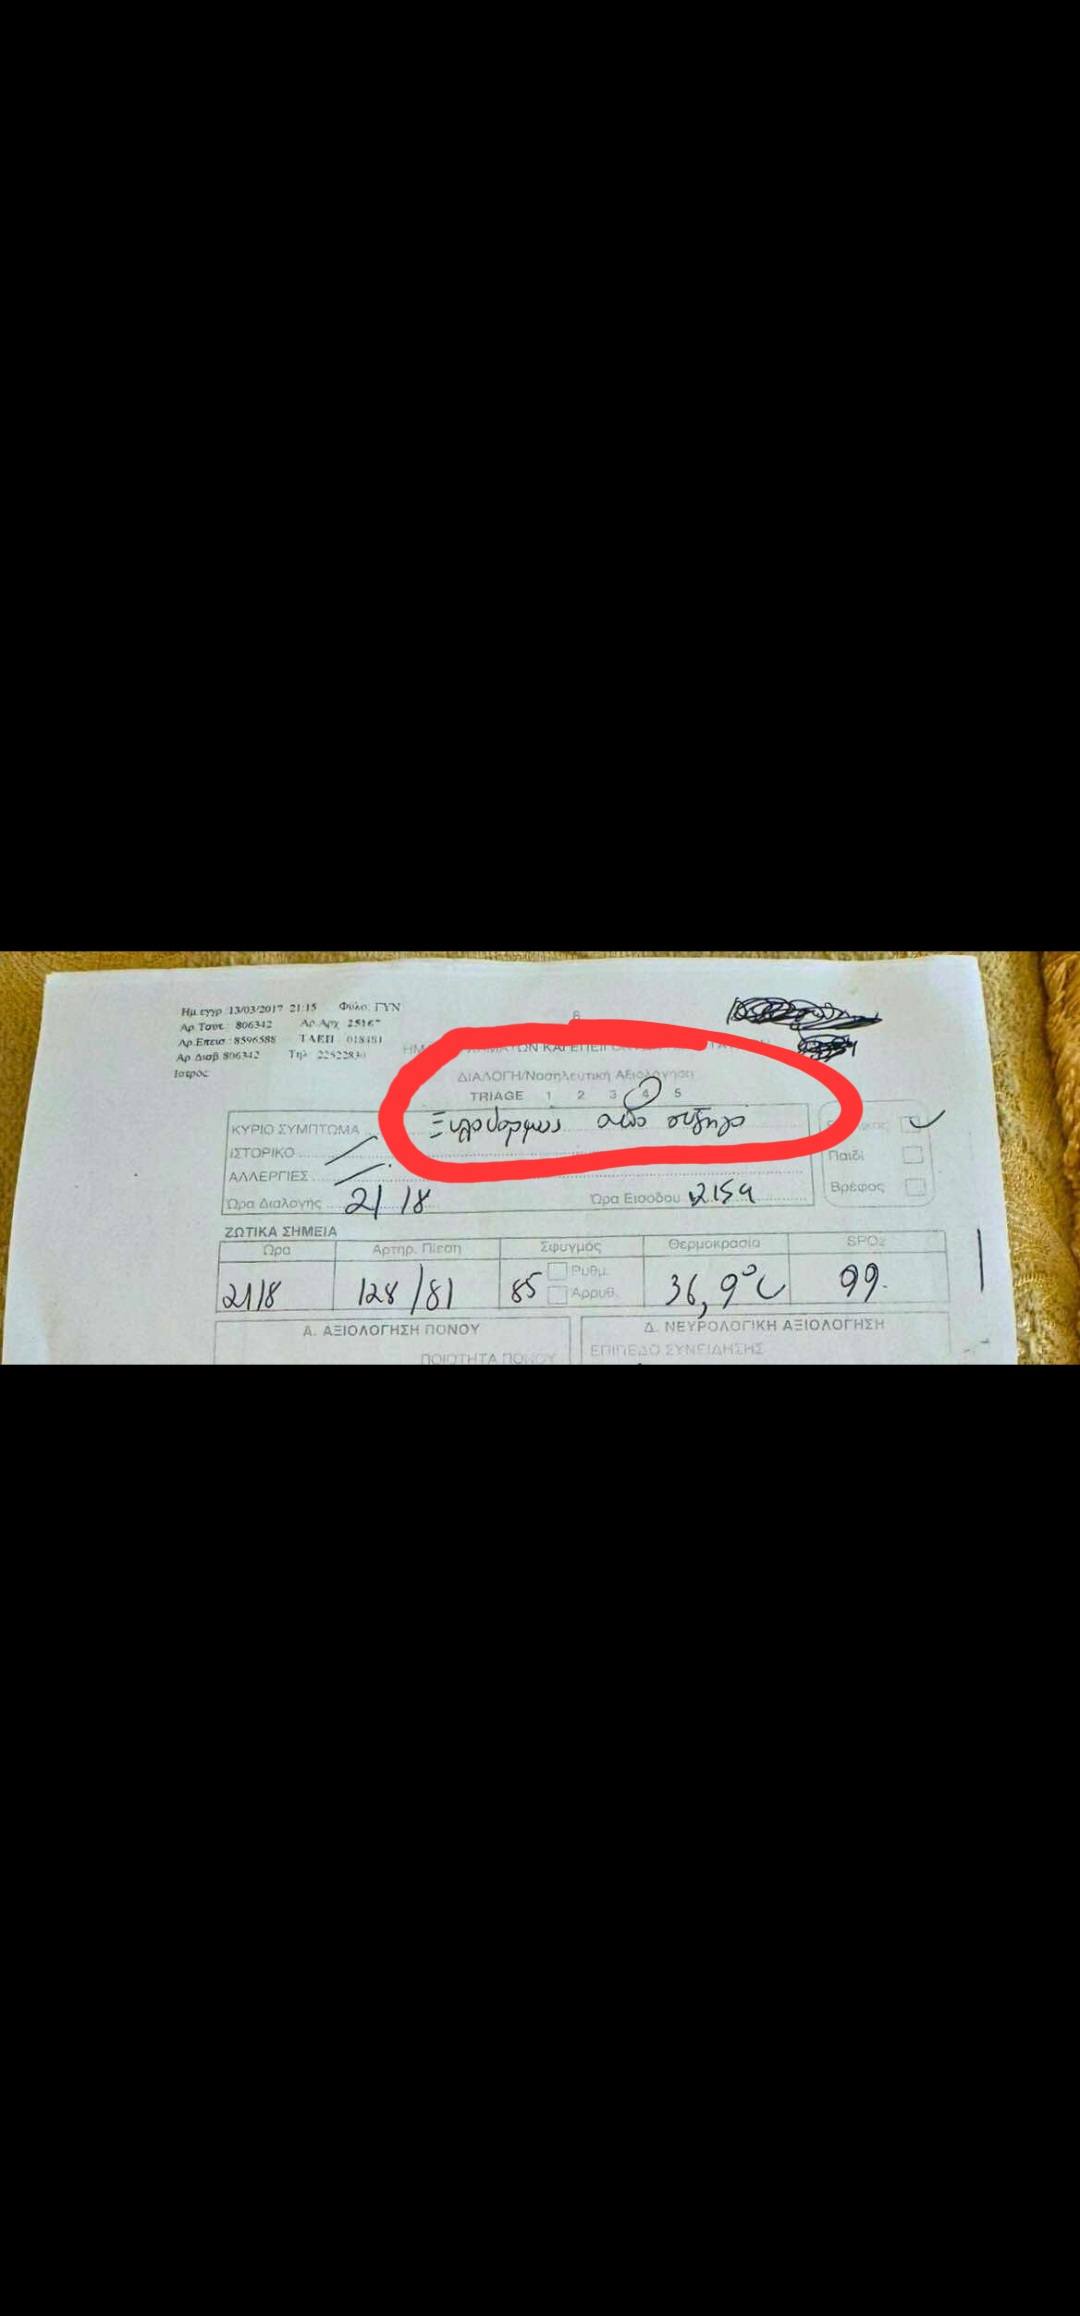 Ημ.εγγρ :13/03/2017 21:15 Φύλο: ΓΥΝ
Αρ.Ταυτ.: 806342 Αρ.Αρχ 25167
Αρ.Επεισ :8596588 ΤΑΕΠ : 018481
Αρ Διαβ 806342 Τηλ: 22522830
Ιατρός:
ΔΙΑΛΟΓΗ/Νοσηλευτική Αξιολόγηση
TRIAGE 1 2 3 4 5
ΚΥΡΙΟ ΣΥΜΠΤΩΜΑ Ξυλοδαρμός από σύζυγο
ΙΣΤΟΡΙΚΟ
Παιδί
ΑΛΛΕΡΓΙΕΣ
Βρέφος
Ώρα Διαλογής 21 18 Ώρα Εισόδου 2159
ΖΩΤΙΚΑ ΣΗΜΕΙΑ
Ώρα Αρτηρ. Πίεση Σφυγμός Θερμοκρασία SPO2
2118 128/81 85 Ρυθμ. Αρρυθ. 36,9°C 99
Α. ΑΞΙΟΛΟΓΗΣΗ ΠΟΝΟΥ Δ. ΝΕΥΡΟΛΟΓΙΚΗ ΑΞΙΟΛΟΓΗΣΗ
ΠΟΙΟΤΗΤΑ ΠΟΝΟΥ ΕΠΙΠΕΔΟ ΣΥΝΕΙΔΗΣΗΣ